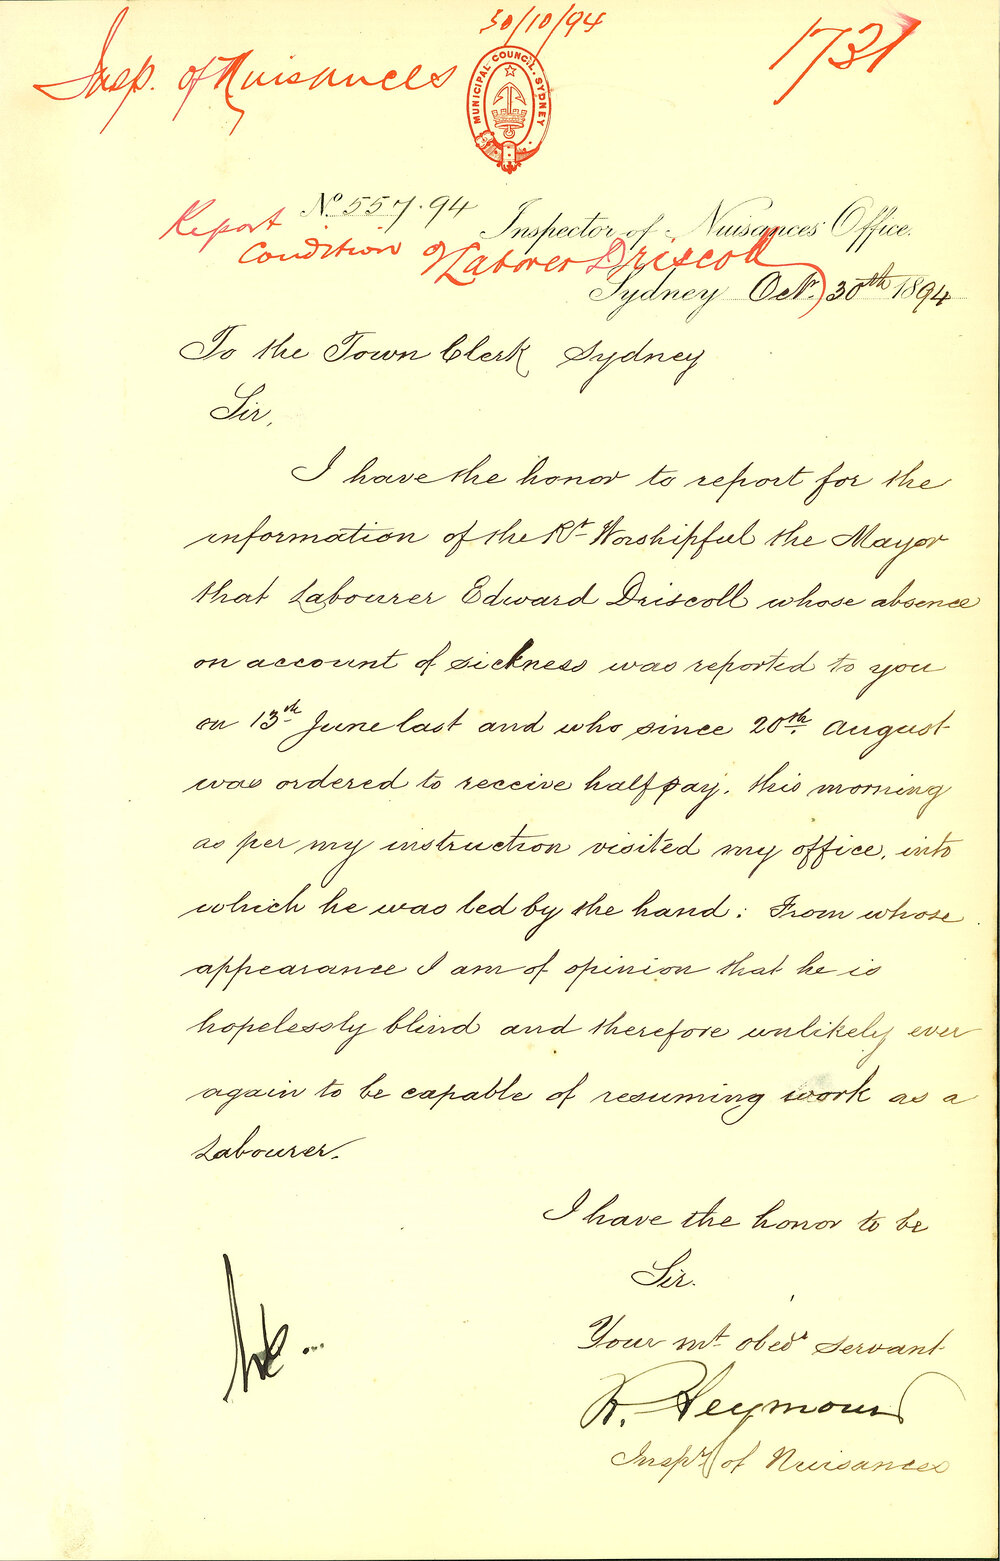 30/10/94
Insp. of Nuisances
1731
MUNICIPAL COUNCIL. SYDNEY
No. 557.94
Inspector of Nuisances' Office.
Report
Condition of Laborer Driscoll
Sydney Octr. 30th 1894
To the Town Clerk Sydney
Sir,
I have the honor to report for the
information of the Rt Worshipful the Mayor
that Labourer Edward Driscoll whose absence
on account of sickness was reported to you
on 13th June last and who since 20th. August
was ordered to receive half pay. this morning
as per my instruction visited my office, into
which he was led by the hand: From whose
appearance I am of opinion that he is
hopelessly blind and therefore unlikely ever
again to be capable of resuming work as a
Labourer.
I have the honor to be
Sir.
Your mt. obedt servant
R. Seymour
Inspr of Nuisances